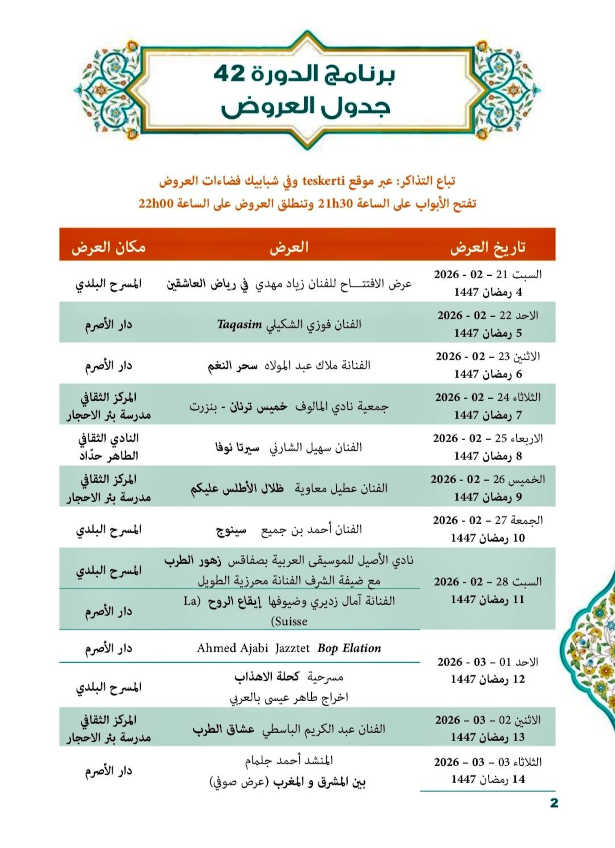 برنامج الدورة 42
جدول العروض
تباع التذاكر: عبر موقع teskerti وفي شبابيك فضاءات العروض
تفتح الأبواب على الساعة 21h30 وتنطلق العروض على الساعة 22h00
تاريخ العرض العرض مكان العرض
السبت 21 – 02 - 2026
4 رمضان 1447
عرض الافتتـــاح للفنان زياد مهدي في رياض العاشقين
المسرح البلدي
الاحد 22 – 02 - 2026
5 رمضان 1447
الفنان فوزي الشكيلي Taqasim
دار الأصرم
الاثنين 23 – 02 - 2026
6 رمضان 1447
الفنانة ملاك عبد المولاه سحر النغم
دار الأصرم
الثلاثاء 24 – 02 - 2026
7 رمضان 1447
جمعية نادي المالوف خميس ترنان - بنزرت
المركز الثقافي
مدرسة بئر الاحجار
الاربعاء 25 – 02 - 2026
8 رمضان 1447
الفنان سهيل الشارني سيرتا نوفا
النادي الثقافي
الطاهر حدّاد
الخميس 26 – 02 - 2026
9 رمضان 1447
الفنان عطيل معاوية ظلال الأطلس عليكم
المركز الثقافي
مدرسة بئر الاحجار
الجمعة 27 – 02 - 2026
10 رمضان 1447
الفنان أحمد بن جميع سينوج
المسرح البلدي
السبت 28 – 02 - 2026
11 رمضان 1447
نادي الأصيل للموسيقى العربية بصفاقس زهور الطرب
مع ضيفة الشرف الفنانة محرزية الطويل
المسرح البلدي
الفنانة آمال زديري وضيوفها إيقاع الروح (La
Suisse)
دار الأصرم
الاحد 01 – 03 - 2026
12 رمضان 1447
Ahmed Ajabi Jazztet Bop Elation
دار الأصرم
مسرحية كحلة الاهذاب
اخراج طاهر عيسى بالعربي
المسرح البلدي
الاثنين 02 – 03 – 2026
13 رمضان 1447
الفنان عبد الكريم الباسطي عشاق الطرب
المركز الثقافي
مدرسة بئر الاحجار
الثلاثاء 03 – 03 – 2026
14 رمضان 1447
المنشد أحمد جلمام
بين المشرق و المغرب (عرض صوفي)
دار الأصرم
2